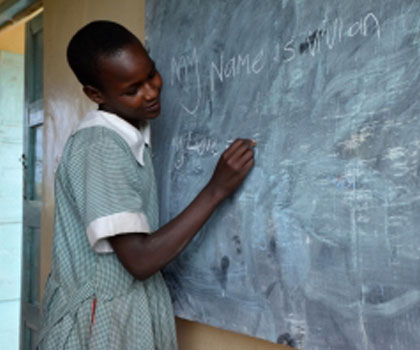 My Name is Vivian
My